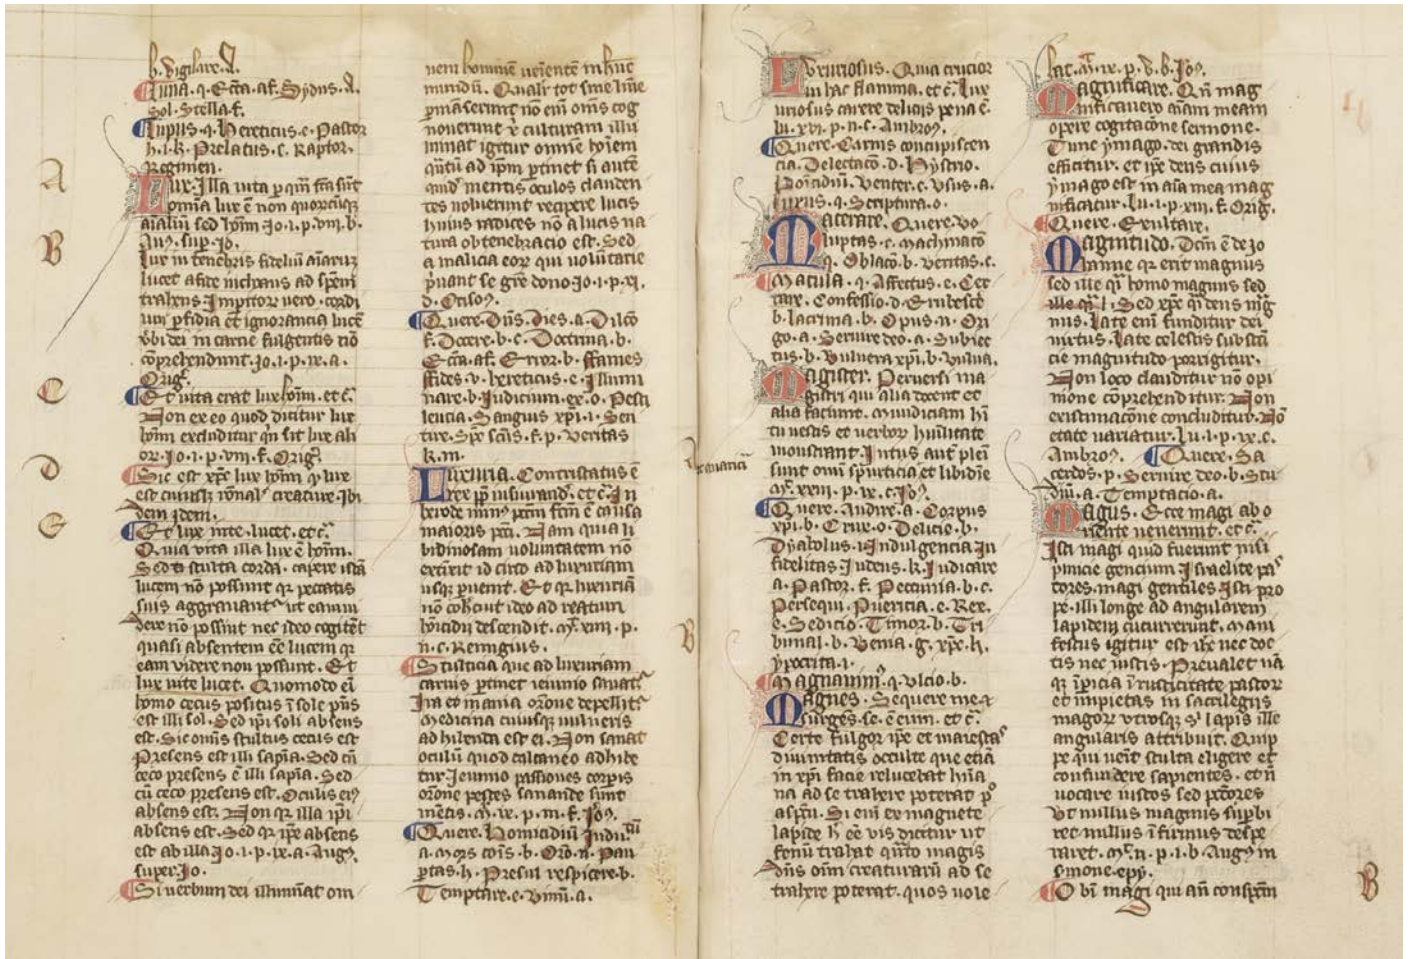 h. vigilare. A.
Luna. q. Ecca. af. Sydus. A.
Sol. Stella. f.
Lupus. q. hereticus. e. Pastor
h. i. k. Prelatus. c. Raptor.
Regimen.
Lux. Illa vita p quam fca sunt
omia lux e non quorumq
aialiu sed hoim Jo. i. p. viii. b.
Aug. sup. Jo.
Lux in tenebris fideliu aiarum
lucet a fide inchoans ad spem
trahens Impitor vero. cordi
um pfidia et ignorancia luce
vbi dei in carne fulgentis no
comprehendunt. Jo. i. p. ix. a.
Orig.
Et vita erat lux hoim. et c.
Non ex eo quod dicitur lux
hoim excluditur qn sit lux ali
or. Jo. i. p. viii. f. Orig.
Sic est xpc lux hoim q lux
est cuiusli ronal creature. Ibi
dem idem.
Et lux inte. lucet. et c.
Quia vita illa lux e hoim.
Sed stulta corda. capere ista
lucem no possunt qr peccatis
suis aggravant ut eam in
dere no possint nec ideo cogitent
quasi absentem ee lucem qr
eam videre non possunt. Et
lux inte lucet. Quomodo eni
homo cecus positus i sole pns
est illi sol. Sed ipi soli absens
est. Sic omis stultus cecus est
Presens est illi sapia. Sed cu
ceco presens e illi sapia. Sed
cu ceco presens est. Oculis ei
absens est. Non qr illa ipi
absens est. Sed qr ipe absens
est ab illa Jo. i. p. ix. a. Aug.
super Jo.
Si verbum dei illuminat om
nem homine veniente in hunc
mundu. Qualir tot sine lume
pmanserunt no eni oms cog
noverunt x culturam illu
minat igitur omne hoiem
quatu ad ipm ptinet si aute
quid mentis oculos clauden
tes noluerint recipere lucis
huius radices no a lucis na
tura obtenebracio est. Sed
a malicia eor qui voluntarie
pvant se gre dono Jo. i. p. xi.
d. Crisos.
Quere. Dns. Dies. a. Dilco
f. Docere. b. c. Doctrina. b.
Ecca. af. Error. b. ffames
ffides. v. hereticus. e. Illumi
nare. b. Judicium. ex. o. Pesti
lencia. Sanguis xpi. i. Sen
tire. Spc scus. f. p. veritas
k. m.
Luxuria. Contristatus e
rex pp iusiurand. et c. In
herode min pctm fcm e causa
maioris pcti. Nam quia li
bidinosam voluntatem no
extinxit id circo ad luxuriam
usq puenit. Et qr luxuria
no cohercuit ideo ad reatum
homicidii descendit. M. xiiii. p.
n. c. Remigius.
Stulticia que ad luxuriam
carnis ptinet ieiunio sanat
Ira et mania orone depellit
Medicina cuiusq vulneris
adhibenda est ei. Non sanat
oculu quod calcaneo adhibe
tur. Jeiunio passiones corpis
orone pestes sanande sunt
mentis. M. ix. p. m. f. Jo.
Quere. Homicidiu Judiciu
a. Mors cois. b. Oro. n. Pau
ptas. h. Presul respicere. b.
Temptare. e. vinu. a.
Luxuriosus. Quia crucior
in hac flamma. et c. lux
uriosus carere deliciis pena e.
lu. xvi. p. n. c. Ambro.
Quere. Carnis concupiscen
cia. Delectaco. d. Hystrio.
Homicidiu. venter. c. Vsus. a.
Luxus. q. Scriptura. o.
Macerare. Quere vo
luptas. c. machinaco
q. Oblaco. b. veritas. c.
Macula. q. Affectus. e. Cer
tare. Confessio. d. Erubesce
b. lacrima. b. Opus. n. Ori
go. a. Servire deo. a. Subiec
tus. b. Vulnera xpi. b. Vulua.
Magister. Perversi ma
gistri qui alia docent et
alia faciunt. Mundiciam hn
tu vestis et verbor humilitate
monstrant. Intus aut pleni
sunt omi spurticia et libidie
M. xxiii. p. ix. c. Jo.
Quere. Andre. a. Corpus
xpi. b. Crux. o. Delicio. b.
Dyabolus. i. Indulgencia In
fidelitas. Iudeus. k. Iudicare
a. Pastor. f. Peccunia. b. c.
Persequi. Puericia. e. Rex.
e. Sedicio. Timor. b. Tri
bunal. b. Verna. g. xpe. h.
ypocrita. i.
Magnanim. q. vlcio. b.
Magnes. Sequere me. q
surges. se. e eum. et c.
Certe fulgor ipe et maiestas
divinitatis occulte que etia
in xpi facie relucebat hua
na ad se trahere poterat p
aspcu. Si eni ex magnete
lapide h ee vis dicitur ut
ferru trahat qnto magis
dns oim creaturaru ad se
trahere poterat. quos vole
bat. M. ix. p. v. b. Jo.
Magnificare. Qn mag
nificavero aiam meam
opere cogitacone sermone.
Tunc ymago. dei grandis
efficitur. et ipe deus cuius
ymago est in aia mea mag
nificatur. lu. i. p. xiii. f. Orig.
Quere. Exultare.
Magnitudo. Dcm e de io
hanne qr erit magnus
sed ille qr homo magnus sed
ille q l. Sed xpc qr deus mag
nus. late eni funditur dei
virtus. late celestis substa
cie magnitudo porrigitur.
Non loco clauditur no opi
nione comprehenditur. Non
existimacone concluditur. No
etate variatur. lu. i. p. ix. c.
Ambro. Quere. Sa
cerdos. p. Servire deo. b. Stu
diu. a. Temptacio. a.
Magus. Ecce magi ab o
riente venerunt. et c.
Isti magi quid fuerunt nisi
pmicie gencium Israelite pas
tores. magi gentiles Isti pro
pe. illi longe ad angularem
lapidem cucurrerunt. Mani
festus igitur est ipe nec doc
tis nec iustis. Prevalet na
qz ipicia i rusticitate pastor
et impietas in sacrilegiis
magor vtrosqz s lapis ille
angularis attribuit. Quip
pe qui venit stulta eligere et
confundere sapientes. et n
vocare iustos sed pctores
vt nullus magnus supbi
ret nullus ifirmus despe
raret. M. n. p. i. b Aug in
smone. epy.
O bti magi qui an conspem
A
B
C
D
E
B
B